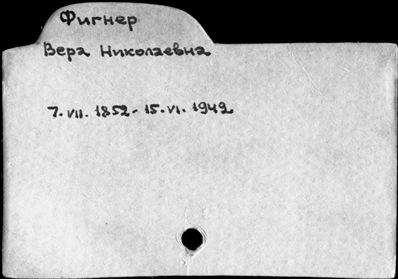 Фигнер
Вера Николаевна
7. VII. 1852 - 15. VI. 1942